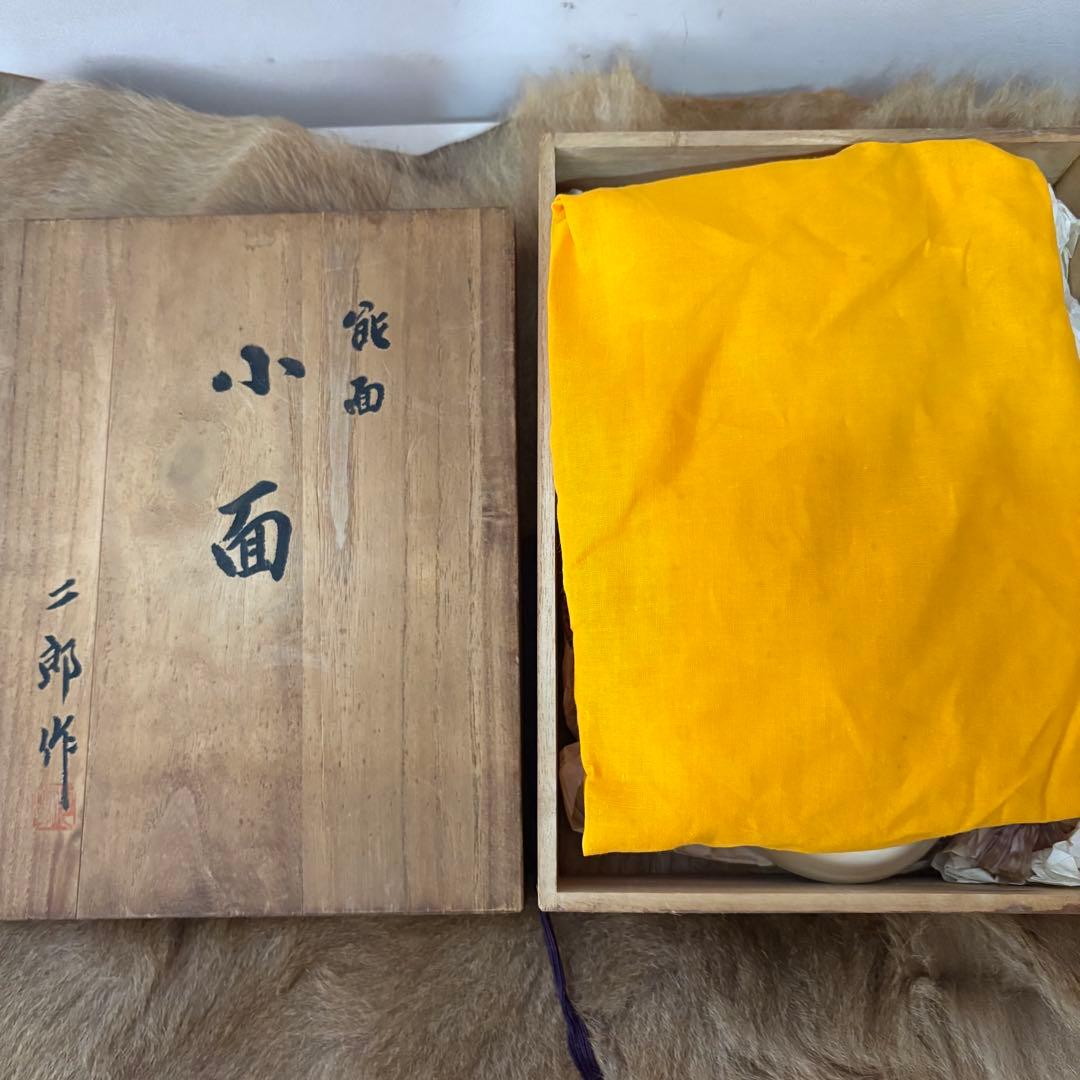 能面
小面
二郎作